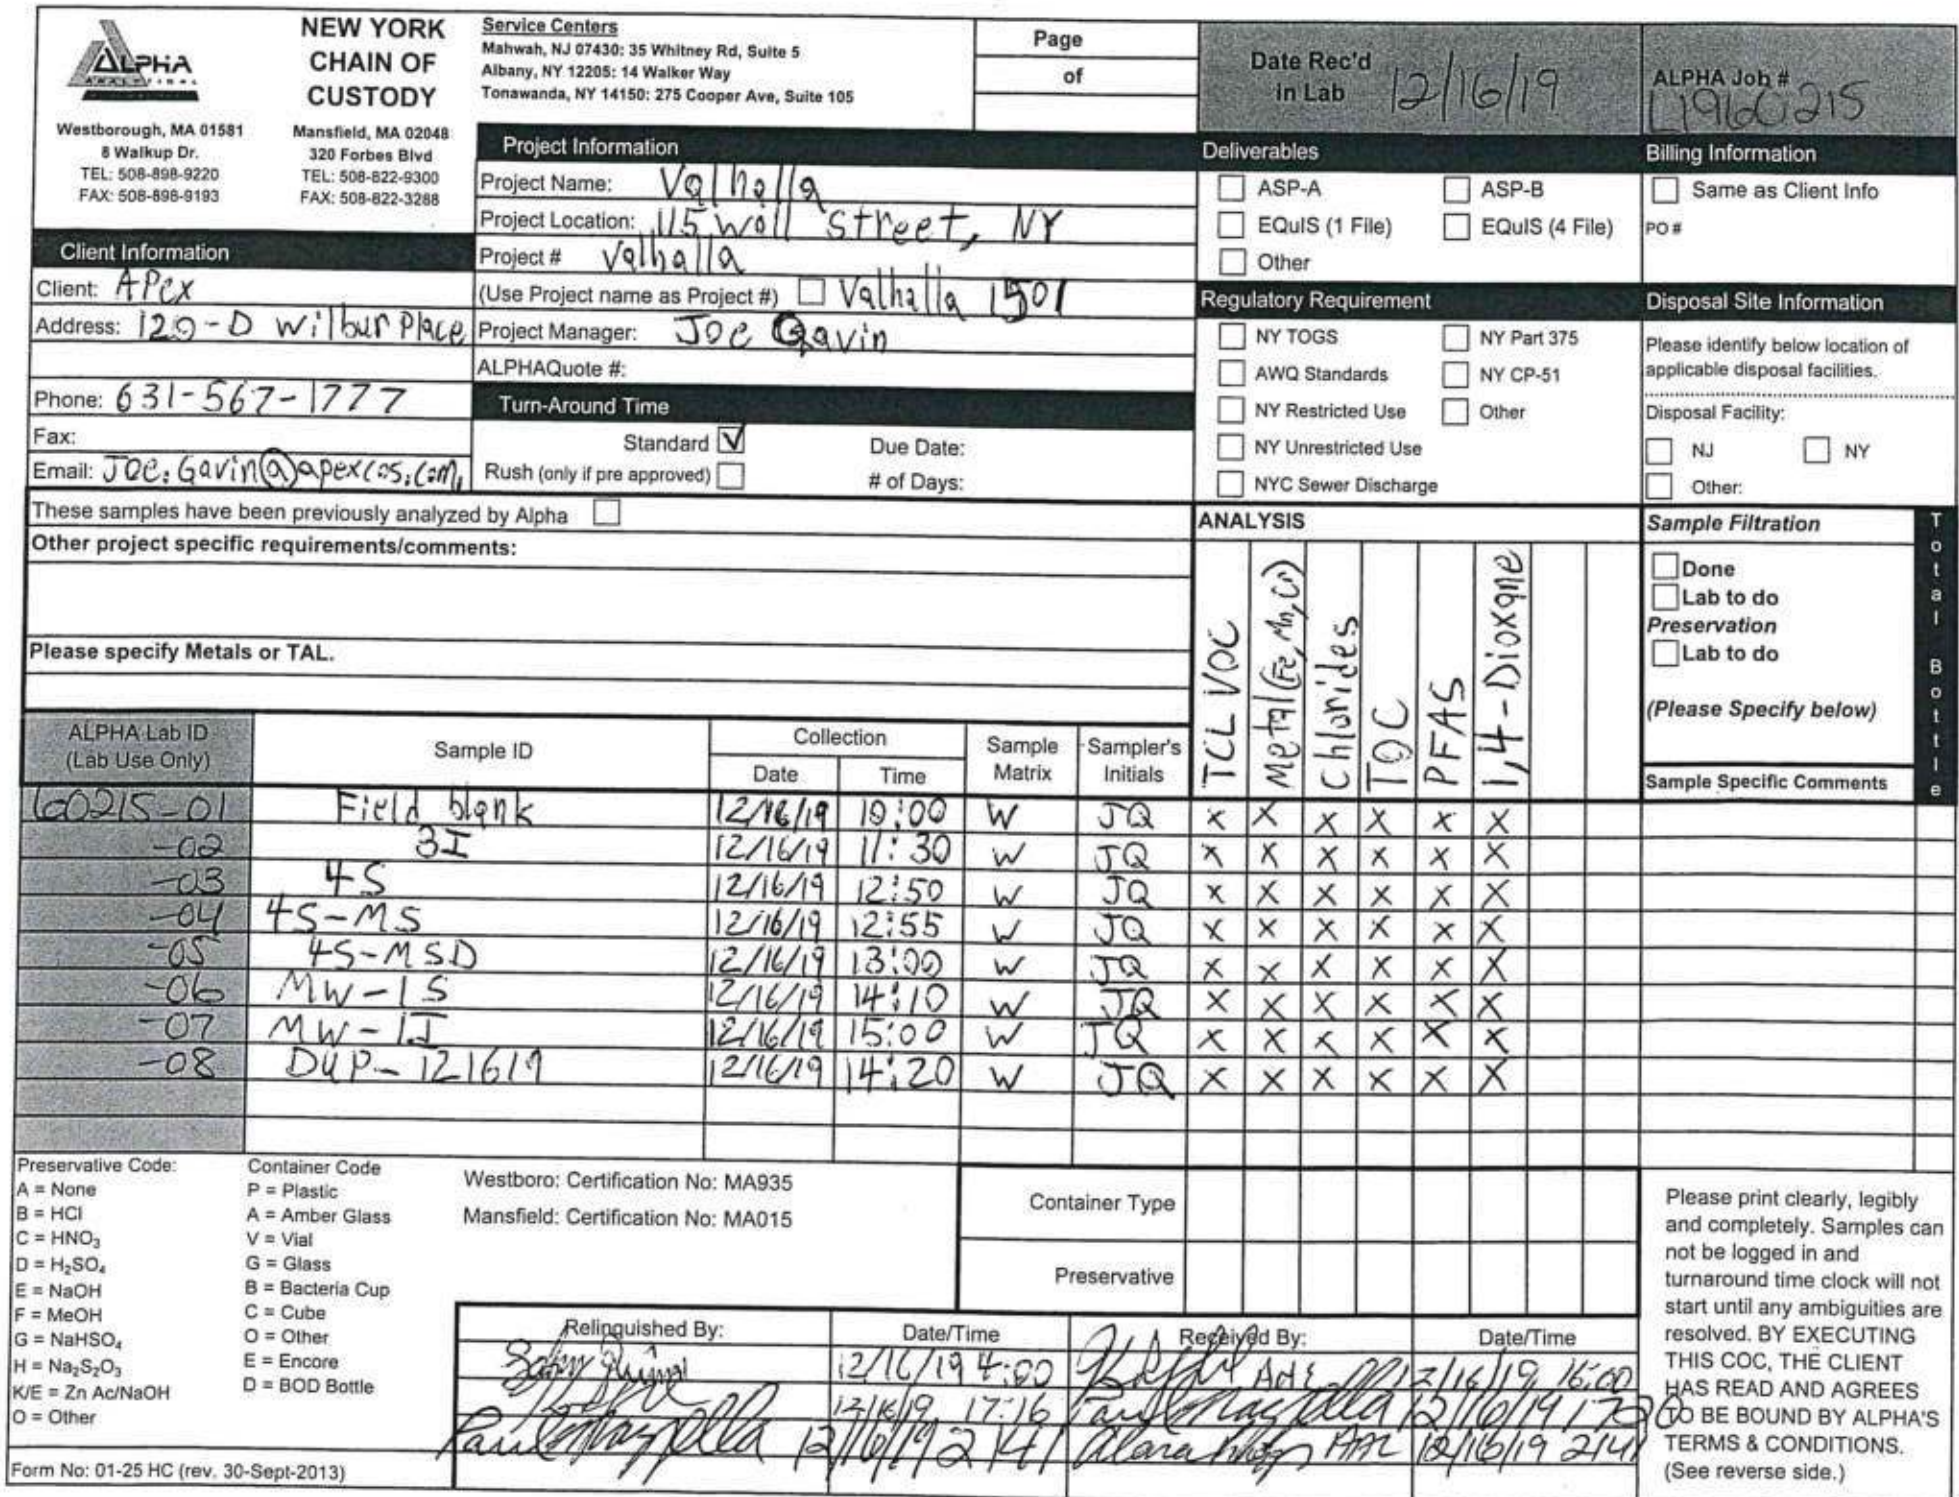 ALPHA
ANALYTICAL
Westborough, MA 01581
8 Walkup Dr.
TEL: 508-898-9220
FAX: 508-898-9193
NEW YORK
CHAIN OF
CUSTODY
Mansfield, MA 02048
320 Forbes Blvd
TEL: 508-822-9300
FAX: 508-822-3288
Service Centers
Mahwah, NJ 07430: 35 Whitney Rd, Suite 5
Albany, NY 12205: 14 Walker Way
Tonawanda, NY 14150: 275 Cooper Ave, Suite 105
Page
of
Date Rec'd
in Lab 12/16/19
ALPHA Job #
L1960215
Client Information
Client: APex
Address: 120-D Wilbur Place
Phone: 631-567-1777
Fax:
Email: Joe.Gavin@apexcos.com
Project Information
Project Name: Valhalla
Project Location: 115 Wall Street, NY
Project # Valhalla
(Use Project name as Project #) Valhalla 1501
Project Manager: Joe Gavin
ALPHAQuote #:
Turn-Around Time
Standard Due Date:
Rush (only if pre approved) # of Days:
Deliverables
ASP-A ASP-B
EQuIS (1 File) EQuIS (4 File)
Other
Regulatory Requirement
NY TOGS NY Part 375
AWQ Standards NY CP-51
NY Restricted Use Other
NY Unrestricted Use
NYC Sewer Discharge
Billing Information
Same as Client Info
PO #
Disposal Site Information
Please identify below location of
applicable disposal facilities.
Disposal Facility:
NJ NY
Other:
These samples have been previously analyzed by Alpha
Other project specific requirements/comments:
Please specify Metals or TAL.
ANALYSIS
TCL VOC
Metal (Fe, Mn, Cr)
Chlorides
TOC
PFAS
1,4-Dioxane
Sample Filtration
Done
Lab to do
Preservation
Lab to do
(Please Specify below)
Sample Specific Comments
Total Bottle
ALPHA Lab ID
(Lab Use Only)
Sample ID
Collection
Date Time
Sample
Matrix
Sampler's
Initials
60215-01 Field blank 12/16/19 10:00 W JQ X X X X X X
-02 3I 12/16/19 11:30 W JQ X X X X X X
-03 4S 12/16/19 12:50 W JQ X X X X X X
-04 4S-MS 12/16/19 12:55 W JQ X X X X X X
-05 4S-MSD 12/16/19 13:00 W JQ X X X X X X
-06 MW-1S 12/16/19 14:10 W JQ X X X X X X
-07 MW-1I 12/16/19 15:00 W JQ X X X X X X
-08 DUP-121619 12/16/19 14:20 W JQ X X X X X X
Preservative Code:
A = None
B = HCl
C = HNO₃
D = H₂SO₄
E = NaOH
F = MeOH
G = NaHSO₄
H = Na₂S₂O₃
K/E = Zn Ac/NaOH
O = Other
Container Code
P = Plastic
A = Amber Glass
V = Vial
G = Glass
B = Bacteria Cup
C = Cube
O = Other
E = Encore
D = BOD Bottle
Westboro: Certification No: MA935
Mansfield: Certification No: MA015
Container Type
Preservative
Relinquished By: Date/Time Received By: Date/Time
12/16/19 4:00 12/16/19 16:00
12/16/19 17:16 12/16/19
12/16/19 2141 AAL 12/16/19 2141
Please print clearly, legibly
and completely. Samples can
not be logged in and
turnaround time clock will not
start until any ambiguities are
resolved. BY EXECUTING
THIS COC, THE CLIENT
HAS READ AND AGREES
TO BE BOUND BY ALPHA'S
TERMS & CONDITIONS.
(See reverse side.)
Form No: 01-25 HC (rev. 30-Sept-2013)